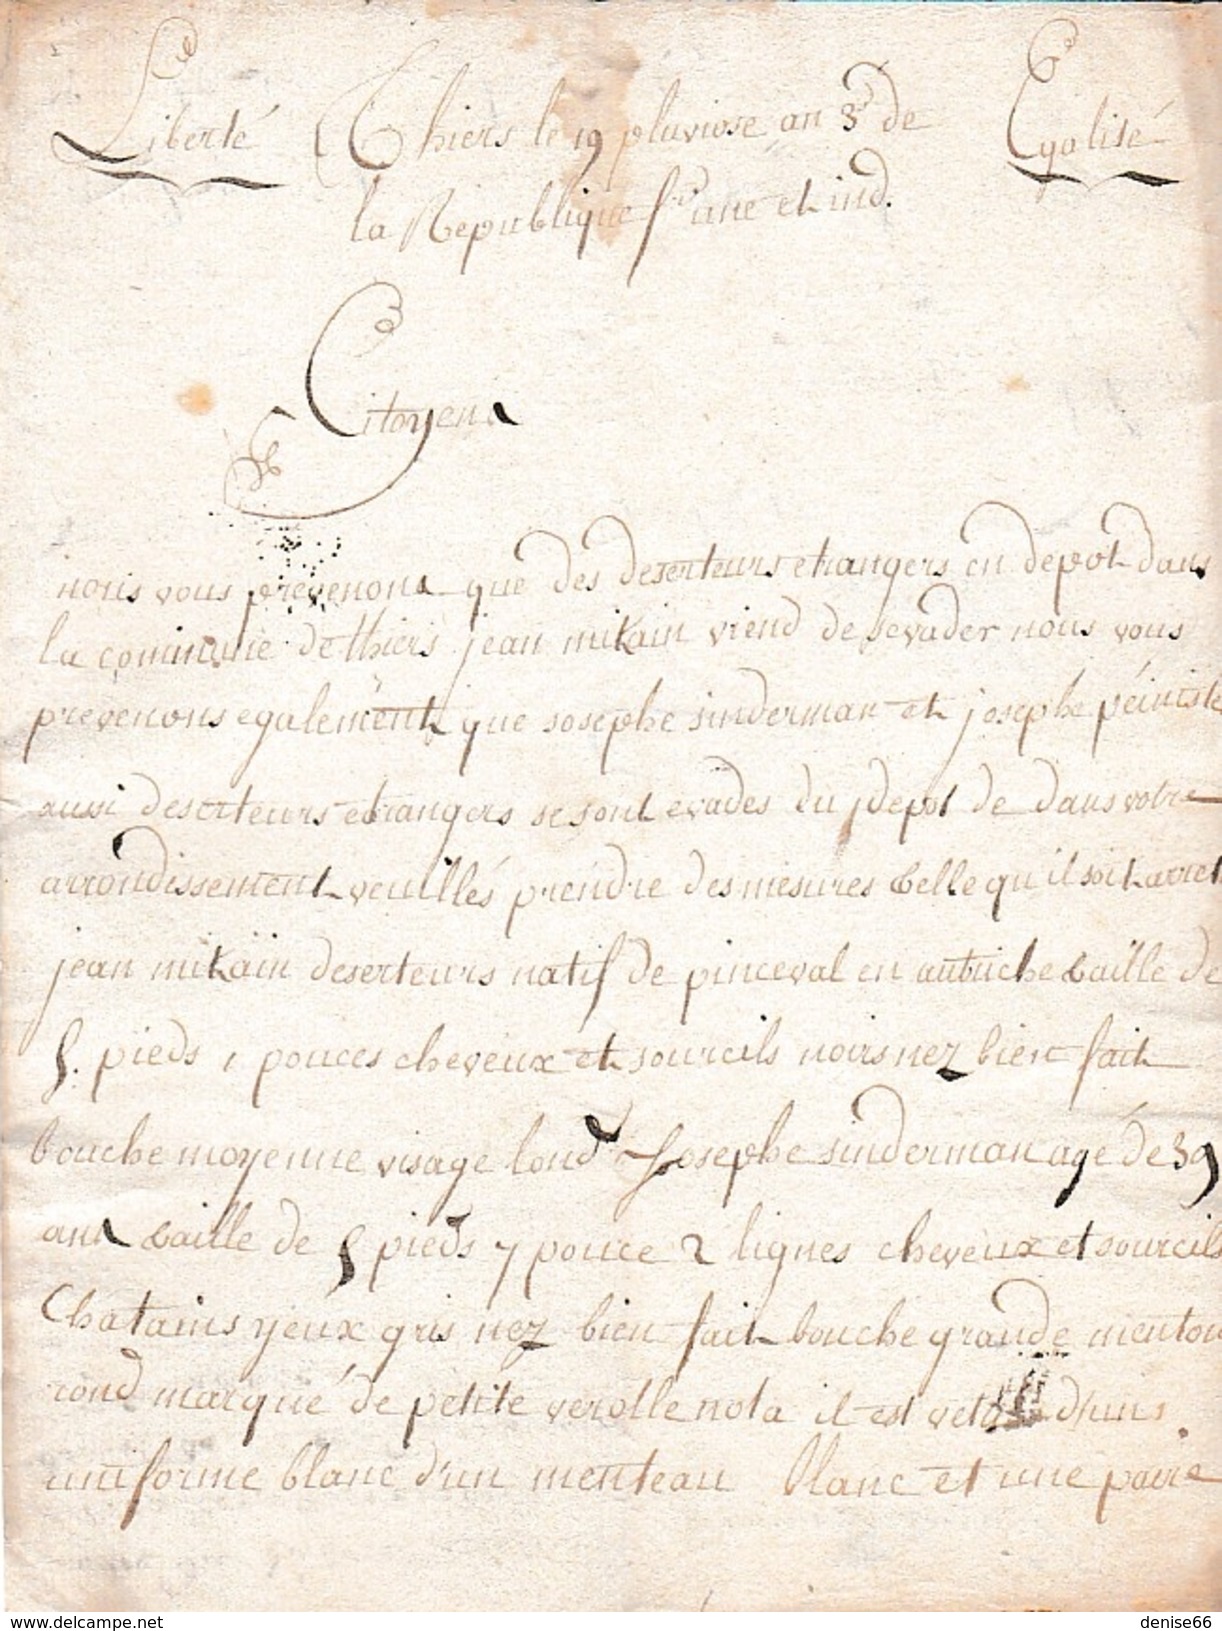 Liberté Thiers le 19 pluviose an 3e de Egalité
la Republique f. une et ind.
Citoyens
nous vous prevenons que des deserteurs etrangers en depot dans
la commune de thiers jean mikain viend de sevader nous vous
prevenons egalement que josephe sinderman et josephe péiniste
aussi deserteurs etrangers se sont evades du depot de dans votre
arrondissement veuillés prendre des mesures telle qu'il soit arret
jean mikain deserteurs natif de pinceval en autriche taille de
5. pieds 1 pouces cheveux et sourcils noirs nez bien fait
bouche moyenne visage lond Josephe sinderman agé de 39
ans taille de 5 pieds 7 pouce 2 lignes cheveux et sourcils
Chatains yeux gris nez bien fait bouche grande menton
rond marqué de petite verolle nota il est vetu d'uns
uniforme blanc d'un menteau blanc et une paire
www.delcampe.net
denise66